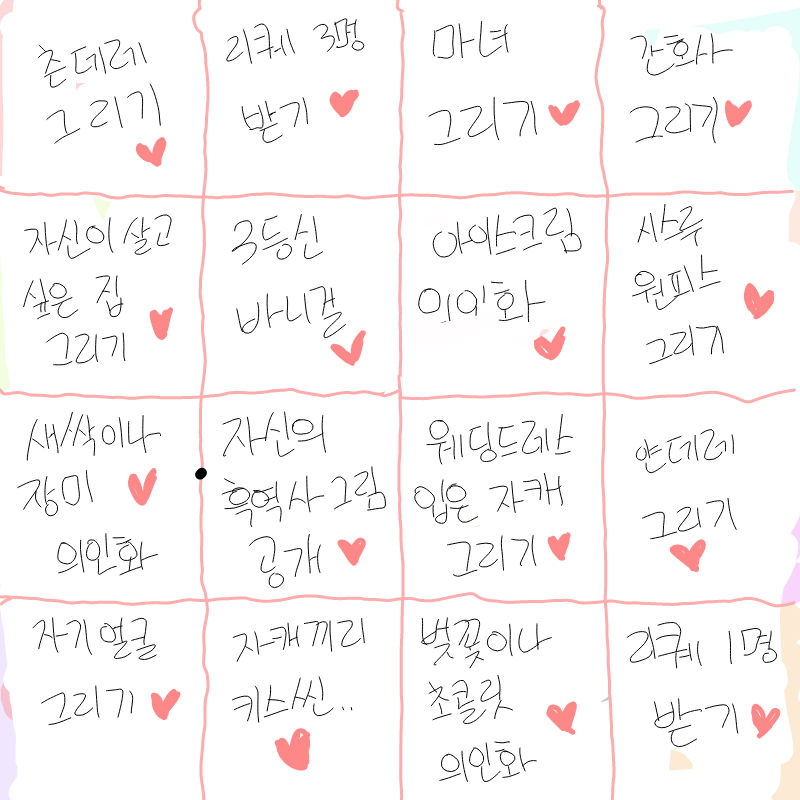 츤데레
그리기
리퀘 3명
받기
마녀
그리기
간호사
그리기
자신이 살고
싶은 집
그리기
3등신
바니걸
아이스크림
의인화
사루
원피스
그리기
새싹이나
장미
의인화
자신의
흑역사 그림
공개
웨딩드레스
입은 자캐
그리기
얀데레
그리기
자기 얼굴
그리기
자캐끼리
키스씬..
벚꽃이나
초콜릿
의인화
리퀘 1명
받기